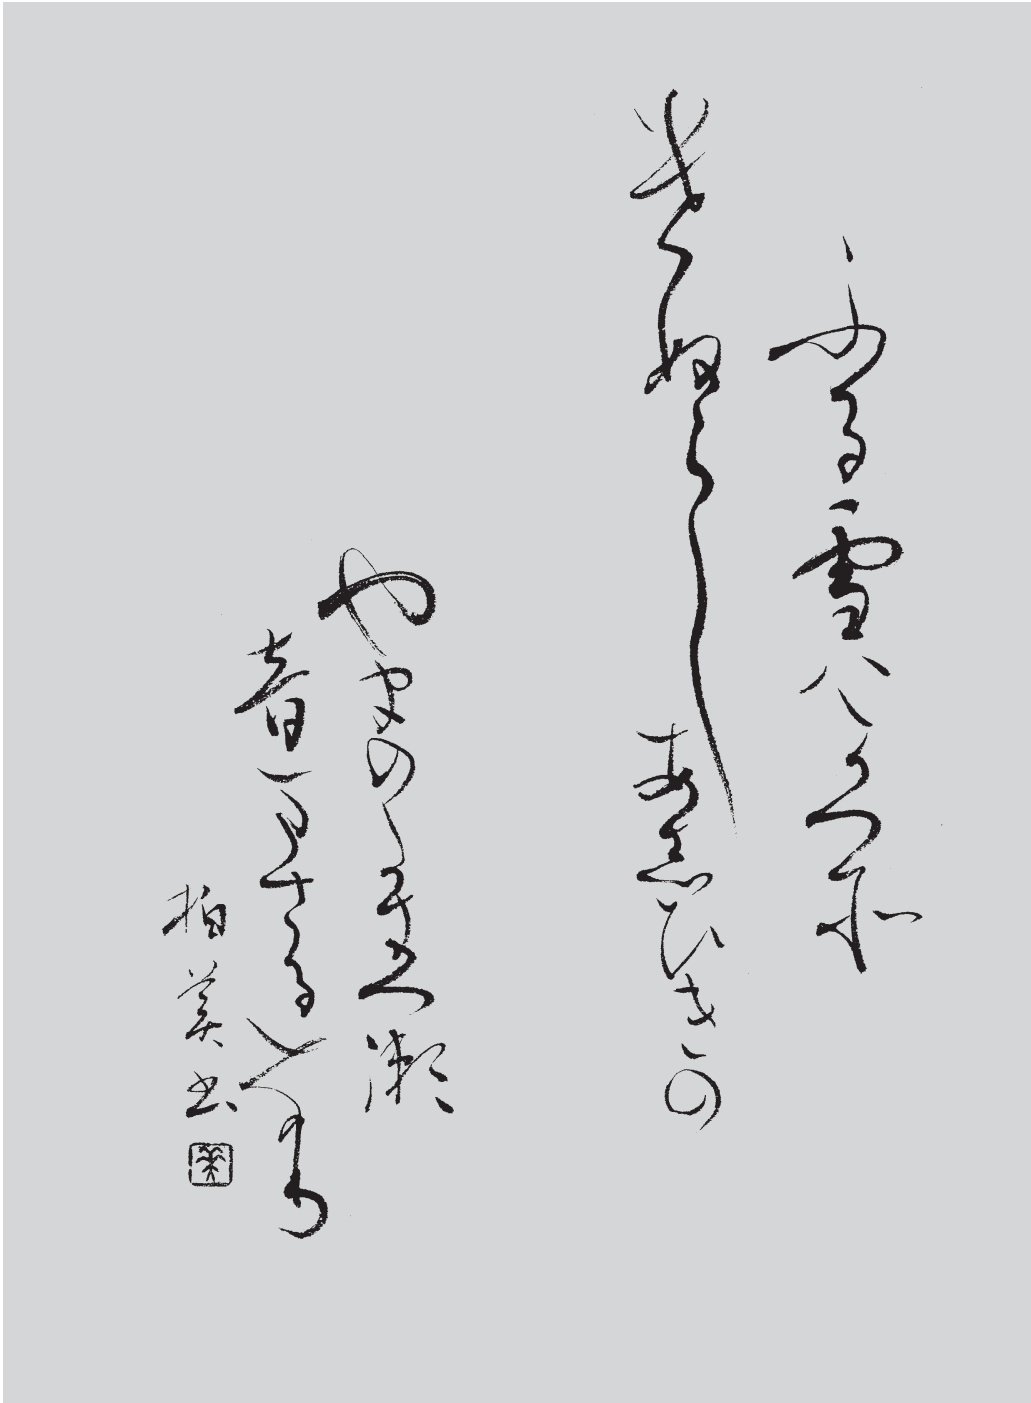 ふる雪八かつそ
けぬらしあ志ひきの
やまのたきつ瀬
音まさるなり
柏美書